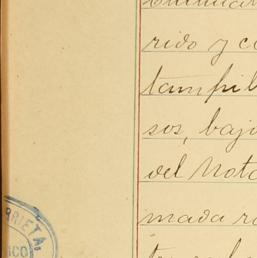 rido y co
tampil
sos, baj
del Nota
mada r
RRIETA.
ICO